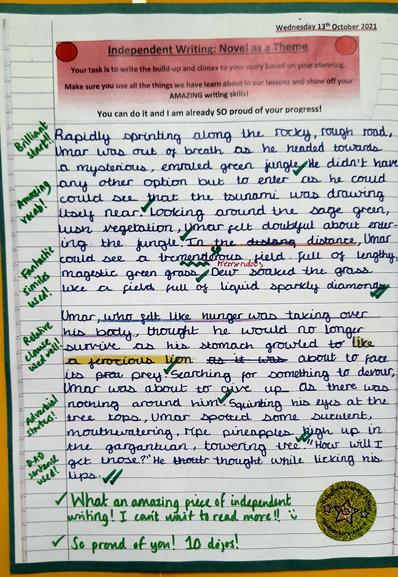 Wednesday 13th October 2021
Independent Writing: Novel as a Theme
Your task is to write the build-up and climax to your story based on your planning.
Make sure you use all the things we have learn about in our lessons and show off your
AMAZING writing skills!
You can do it and I am already SO proud of your progress!
Brilliant start!
Rapidly sprinting along the rocky, rough road,
Umar was out of breath as he headed towards
a mysterious, emraled green jungle. He didn't have
any other option but to enter as he could
Amazing vocab!
could see that the tsunami was drawing
itself near. Looking around the sage green,
lush vegetation, Umar felt doubtful about enter-
ing the jungle. In the distang distance, Umar
Fantastic similes used!
could see a tremenderous field full of lengthy,
tremendous
magestic green grass. Dew soaked the grass
like a field full of liquid sparkly diamonds
Umar, who felt like hunger was taking over
Relative clauses used well!
his body, thought he would no longer
survive as his stomach growled to like
a ferocious lion as it was about to face
its prau prey. Searching for something to devour,
Umar was about to give up as there was
Adverbial starters!
nothing around him. Squinting his eyes at the
tree tops, Umar spotted some suculent,
mouthwatering, ripe, pineapples high up in
the gargantuan, towering tree. "How will I
sentence used!
get those?" He thoutr thought while licking his
lips.
What an amazing piece of independent
writing! I can't wait to read more!!
So proud of you! 10 dojos!